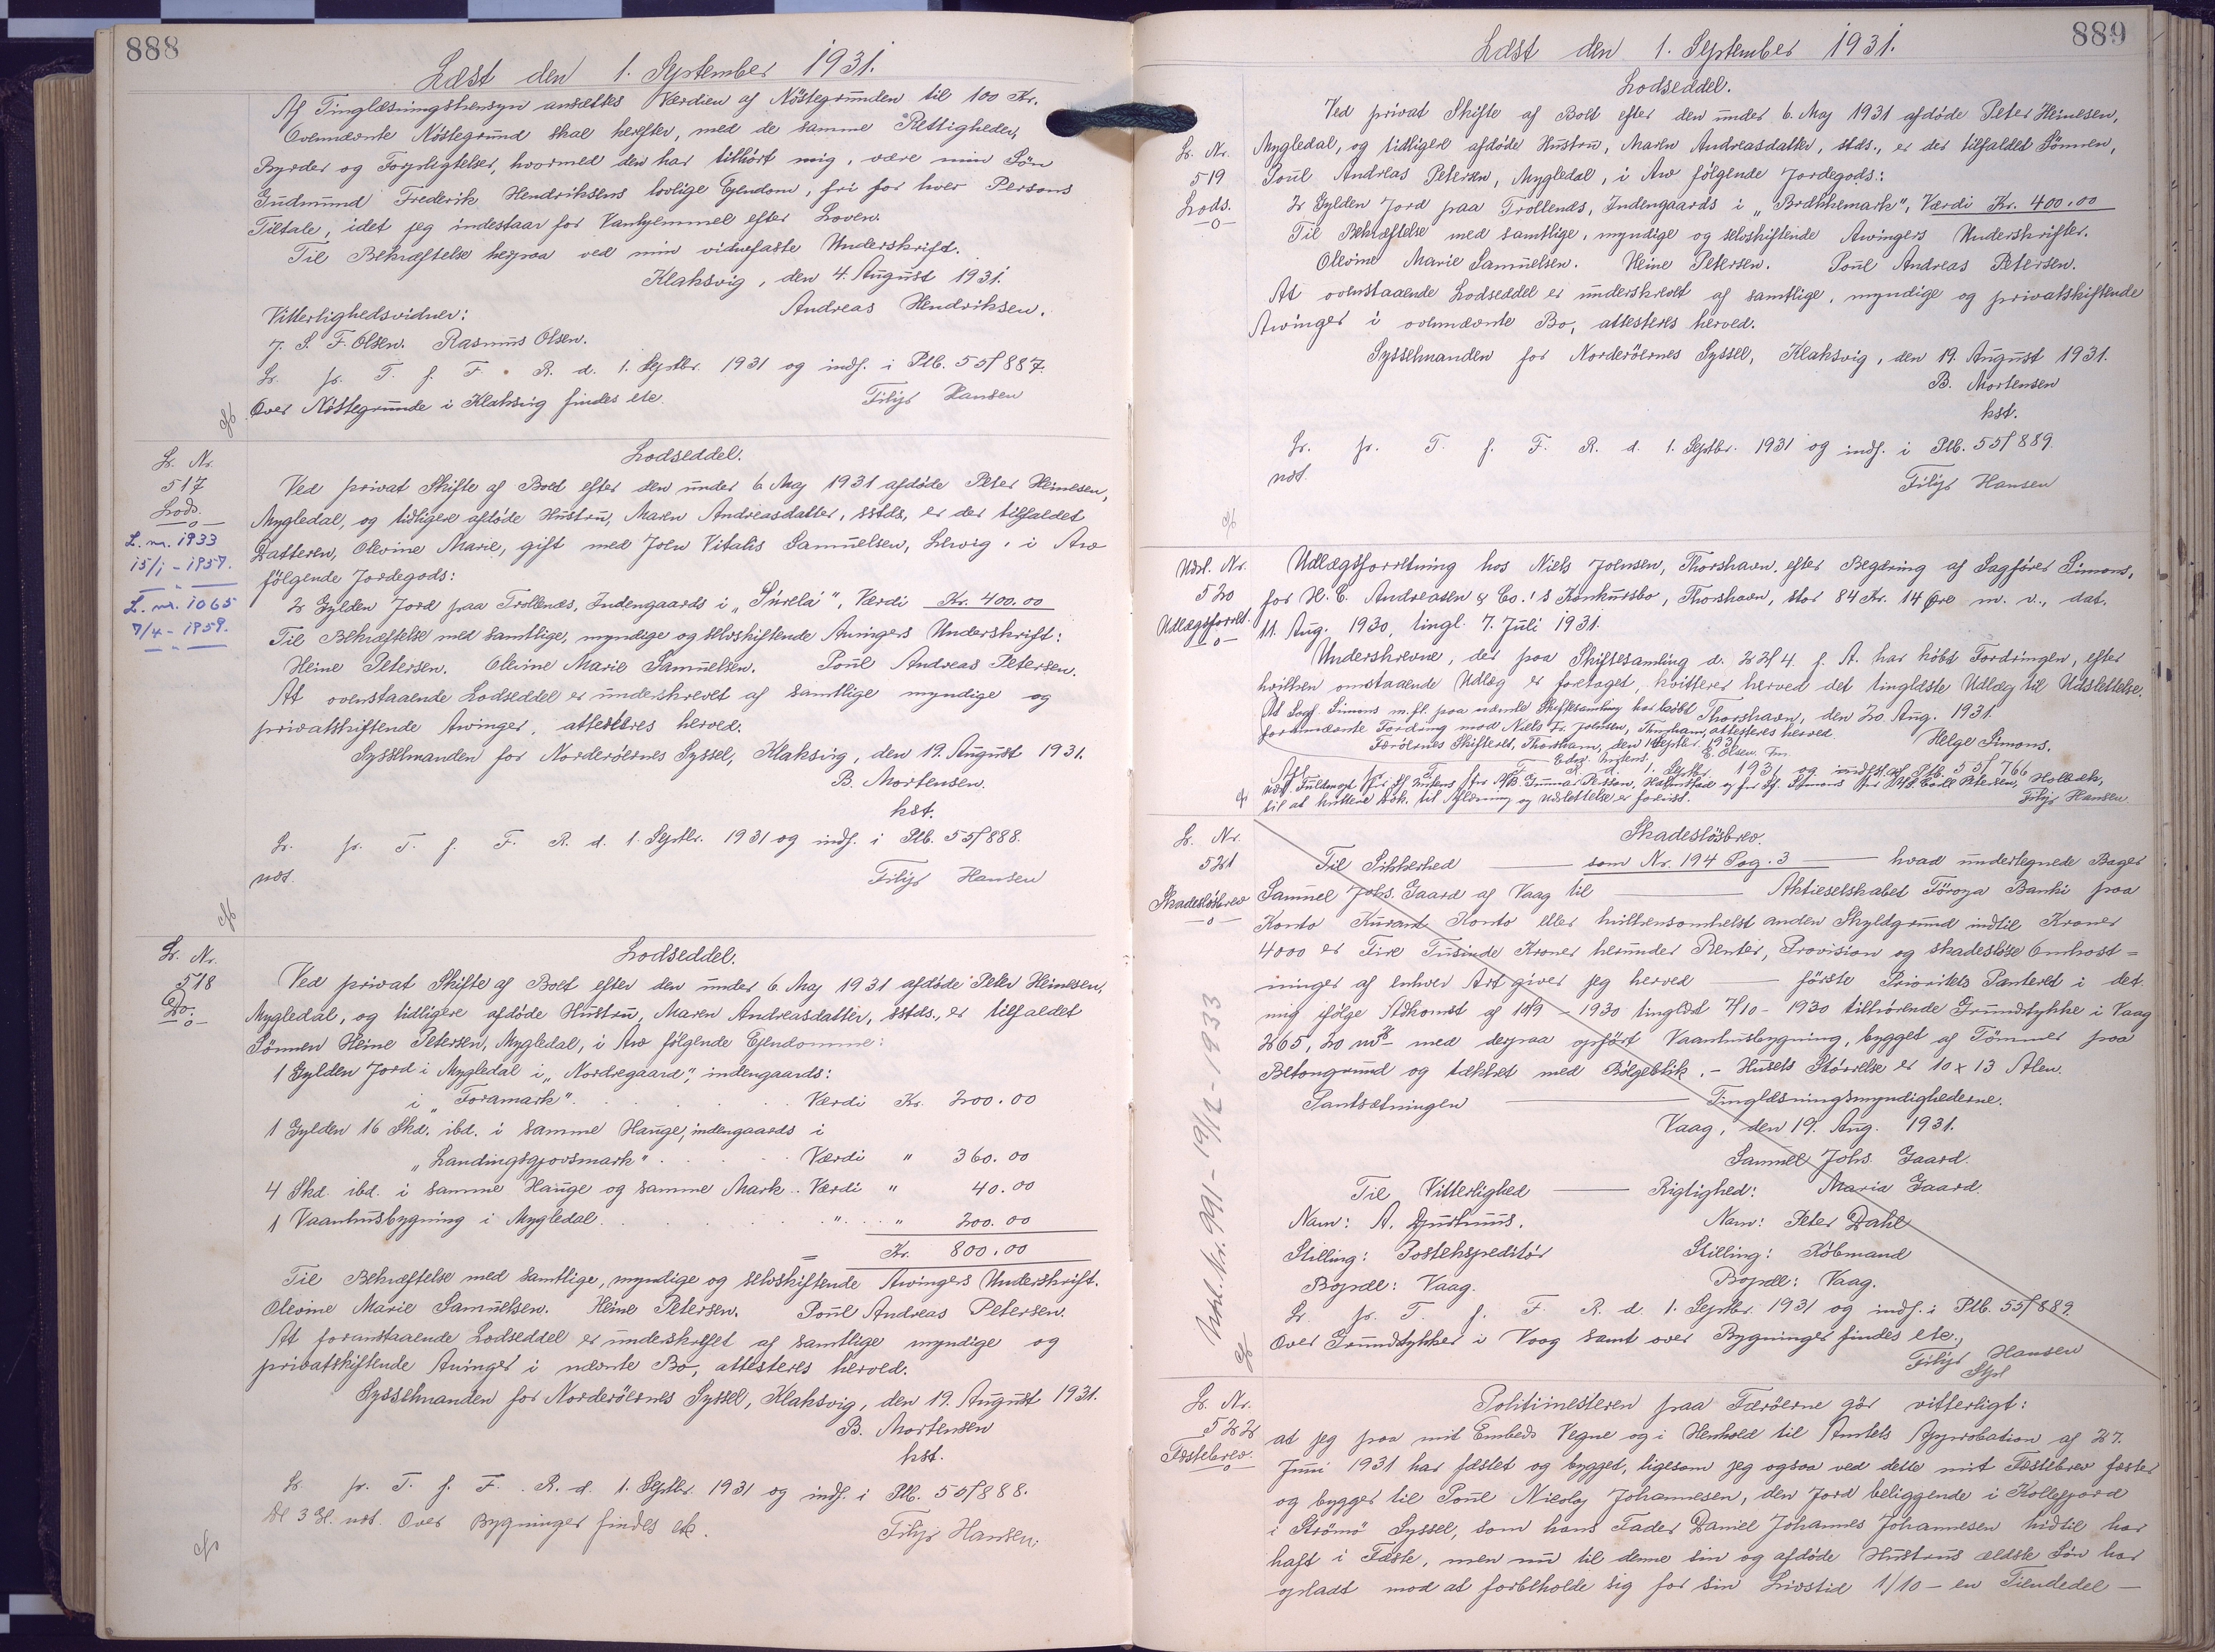 888
Læst den 1. September 1931.
Af Tinglæsningshensyn ansættes Værdien af Nöstegrunden til 100 Kr.
Ovennævnte Nöstegrund skal herefter, med de samme Rettigheder,
Byrder og Forpligtelser, hvormed den har tilhört mig, være min Sön
Gudmund Frederik Hendriksens lovlige Ejendom, fri for hver Persons
Tiltale, idet jeg indestaar for Vanhjemmel efter Loven.
Til Bekræftelse herpaa ved min vidnefaste Underskrift.
Klaksvig, den 4. August 1931.
Andreas Hendriksen.
Vitterlighedsvidner:
J. S. F. Olsen. Rasmus Olsen.
Lr. pr. T. f. F. R. d. 1. Septbr. 1931 og indf. i Ptb. 55f 887.
Over Nöstegrunde i Klaksvig findes etc.
Filip Hansen
Lodseddel.
Lr. Nr.
517
Lods.
L. nr. 1933
15/1 - 1957.
L. nr. 1065
7/4 - 1959.
Ved privat Skifte af Boet efter den under 6. Maj 1931 afdöde Peter Heinesen,
Mygledal, og tidligere afdöde Hustru, Maren Andreasdatter, sstds, er der tilfaldet
Datteren, Olevine Marie, gift med Joen Vitalis Samuelsen, Lervig, i Arv
fölgende Jordegods:
2 Gylden Jord paa Trollenæs, Indengaards i „Súrelá", Værdi Kr. 400.00
Til Bekræftelse med samtlige, myndige og selvskiftende Arvingers Underskrift:
Heine Petersen. Olevine Marie Samuelsen. Poul Andreas Petersen.
At ovenstaaende Lodseddel er underskrevet af samtlige myndige og
privatskiftende Arvinger, attesteres herved.
Sysselmanden for Norderöernes Syssel, Klaksvig, den 19. August 1931.
B. Mortensen.
kst.
Lr. pr. T. f. F. R. d. 1. Septbr. 1931 og indf. i Ptb. 55f 888.
ndt.
Filip Hansen
Lodseddel.
Lr. Nr.
518
Do.
Ved privat Skifte af Boet efter den under 6. Maj 1931 afdöde Peter Heinesen,
Mygledal, og tidligere afdöde Hustru, Maren Andreasdatter, sstds., er tilfaldet
Sönnen Heine Petersen, Mygledal, i Arv fölgende Ejendomme:
1 Gylden Jord i Mygledal i „Nordregaard", indengaards:
i „Foramark". Værdi Kr. 200.00
1 Gylden 16 Skd. ibd. i samme Hauge, indengaards i
„Landingsgjovsmark" Værdi " 360.00
4 Skd. ibd. i samme Hauge og samme Mark.. Værdi " 40.00
1 Vaanhusbygning i Mygledal. " " 200.00
Kr. 800.00
Til Bekræftelse med samtlige, myndige og selvskiftende Arvingers Underskrift.
Olevine Marie Samuelsen. Heine Petersen. Poul Andreas Petersen.
At foranstaaende Lodseddel er underskrevet af samtlige myndige og
privatskiftende Arvinger i nævnte Bo, attesteres herved.
Sysselmanden for Norderöernes Syssel, Klaksvig, den 19. August 1931.
B. Mortensen
kst.
Lr. pr. T. f. F. R. d. 1. Septbr. 1931 og indf. i Ptb. 55f 888.
De 3 Gl. udt. Over Bygninger findes etc.
Filip Hansen.
889
Læst den 1. September 1931.
Lodseddel.
Lr. Nr.
519
Lods.
Ved privat Skifte af Boet efter den under 6. Maj 1931 afdöde Peter Heinesen,
Mygledal, og tidligere afdöde Hustru, Maren Andreasdatter, stds., er der tilfaldet Sönnen,
Poul Andreas Petersen, Mygledal, i Arv fölgende Jordegods:
2 Gylden Jord paa Trollenæs, Indengaards i „Brækkemark", Værdi Kr. 400.00
Til Bekræftelse med samtlige, myndige og selvskiftende Arvingers Underskrifter.
Olevine Marie Samuelsen. Heine Petersen. Poul Andreas Petersen.
At ovenstaaende Lodseddel er underskrevet af samtlige, myndige og privatskiftende
Arvinger i ovennævnte Bo, attesteres herved.
Sysselmanden for Norderöernes Syssel, Klaksvig, den 19. August 1931.
B. Mortensen
kst.
Lr. pr. T. f. F. R. d. 1. Septbr. 1931 og indf. i Ptb. 55f 889.
ndt.
Filip Hansen
Udsl. Nr.
520
Udlægsforret.
Udlægsforretning hos Niels Joensen, Thorshavn, efter Begæring af Sagförer Simons,
for H. C. Andreasen & Co.'s Konkursbo, Thorshavn, stor 84 Kr. 14 Øre m. v., dat.
11. Aug. 1930, tingl. 7. Juli 1931.
Underskrevne, der paa Skiftesamling d. 22/4 f. A. har köbt Fordringen, efter
hvilken omstaaende Udlæg er foretaget, kvitterer herved det tinglæste Udlæg til Udslettelse.
Thorshavn, den 20. Aug. 1931.
Helge Simons.
At Sagf. Simons m.fl. paa nævnte Skiftesamling har köbt
fornævnte Fordring mod Niels Fr. Joensen, Thorshavn, attesteres herved.
Færöernes Skifteret, Thorshavn, den 1 Septbr. 1931
E. Olsen. Fm.
R. d. 1. Septbr. 1931 og indf. i Ptb. 55f 766
til at kvittere til Aflysning og Udslettelse er forevist.
Filip Hansen
Skadeslösbrev.
Lr. Nr.
521
Skadeslösbrev
Til Sikkerhed — som Nr. 194 Pag. 3 — hvad undertegnede Bager
Samuel Johs. Gaard af Vaag til — Aktieselskabet Föroya Banki paa
Konto Kurant Konto eller hvilkensomhelst anden Skyldgrund indtil Kroner
4000 er Fire Tusinde Kroner herunder Renter, Provision og skadeslöse Omkost=
ninger af enhver Art giver jeg herved — förste Prioritets Panteret i det
mig ifölge Adkomst af 10/9 - 1930 tinglæst 7/10 - 1930 tilhörende Grundstykke i Vaag
265,20 m² med derpaa opfört Vaanhusbygning, bygget af Tömmer paa
Betongrund og tækket med Bölgeblik. - Husets Störrelse er 10 x 13 Alen.
Pantsætningen — Tinglæsningsmyndighederne.
Vaag, den 19. Aug. 1931.
Samuel Johs. Gaard.
Til Vitterlighed — Rigtighed: Maria Gaard.
Navn: A. Djurhuus. Navn: Peter Dahl
Stilling: Postekspeditör Stilling: Köbmand
Bopæl: Vaag. Bopæl: Vaag.
Lr. pr. T. f. F. R. d. 1. Septbr. 1931 og indf. i Ptb. 55f 889.
Over Grundstykker i Vaag samt over Bygninger findes etc.,
Filip Hansen
Nr. 991 - 19/12 - 1933
Lr. Nr.
522
Fæstebrev.
Politimesteren paa Færöerne gör vitterligt:
at jeg paa mit Embeds Vegne og i Henhold til Amtets Approbation af 27.
Juni 1931 har fæstet og bygget, ligesom jeg ogsaa ved dette mit Fæstebrev fæster
og bygger til Poul Nicolaj Johannesen, den Jord beliggende i Kollefjord
i Strömö Syssel, som hans Fader Daniel Johannes Johannesen hidtil har
haft i Fæste, men nu til denne sin og afdöde Hustrus ældste Sön har
opladt mod at forbeholde sig for sin Livstid 1/10 - en Tiendedel -